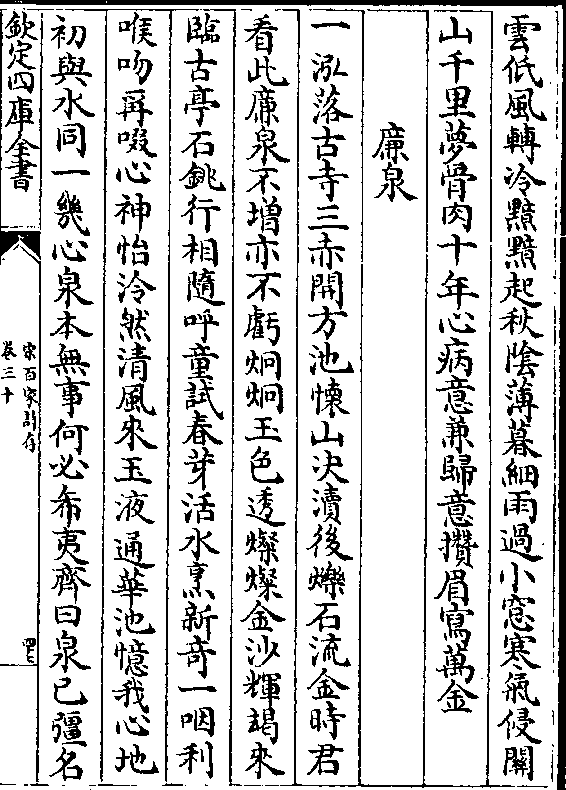 雲低風轉冷黯黯起秋陰薄暮細雨過小窓寒氣侵關
山千里夢骨肉十年心病意兼歸意攢眉寫萬金
廉泉
一泓落古寺三赤開方池懐山决瀆後爍石流金時君
看此廉泉不增亦不虧炯炯玉色透燦燦金沙輝竭來
臨古亭石銚行相隨呼童試春芽活水烹新奇一咽利
喉吻再啜心神怡泠然清風來玉液通華池憶我心地
初與水同一幾心泉本無事何必布夷齊曰泉已彊名
欽定四庫全書
宋百家詩存
卷三十
四七